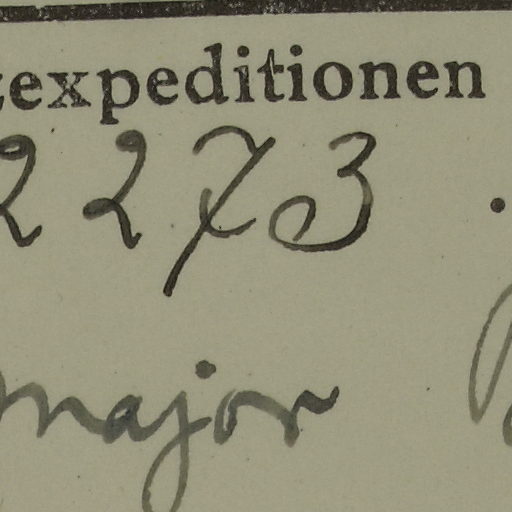 texpeditionen
2273.
major